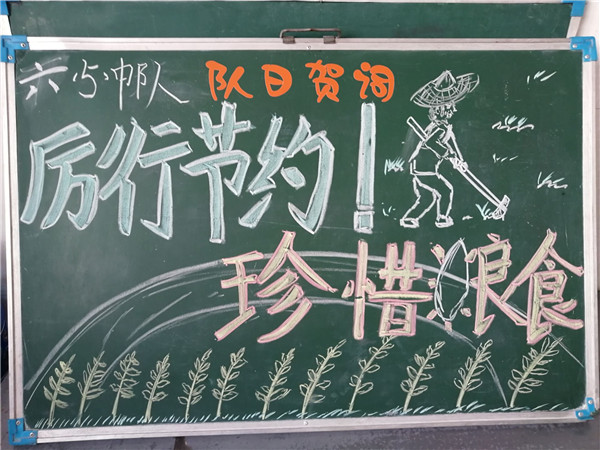 六(5)中队 队日贺词
厉行节约!
珍惜粮食